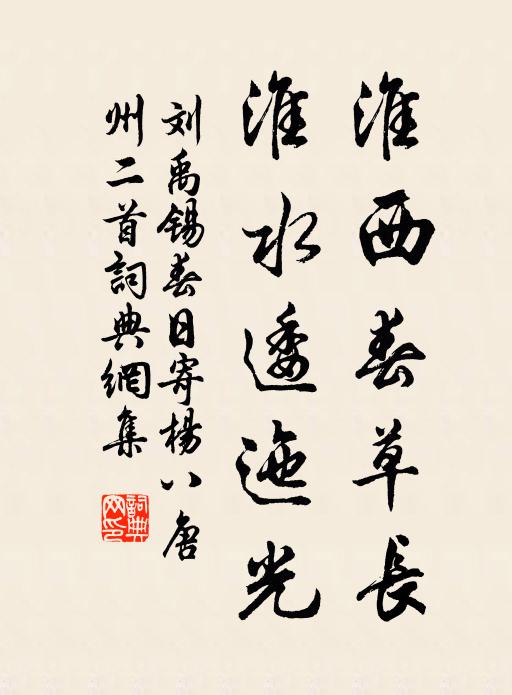 淮西春草長
淮水逶迤光
刘禹锡春日寄楊八唐
州二首詞典網集
詞典网印